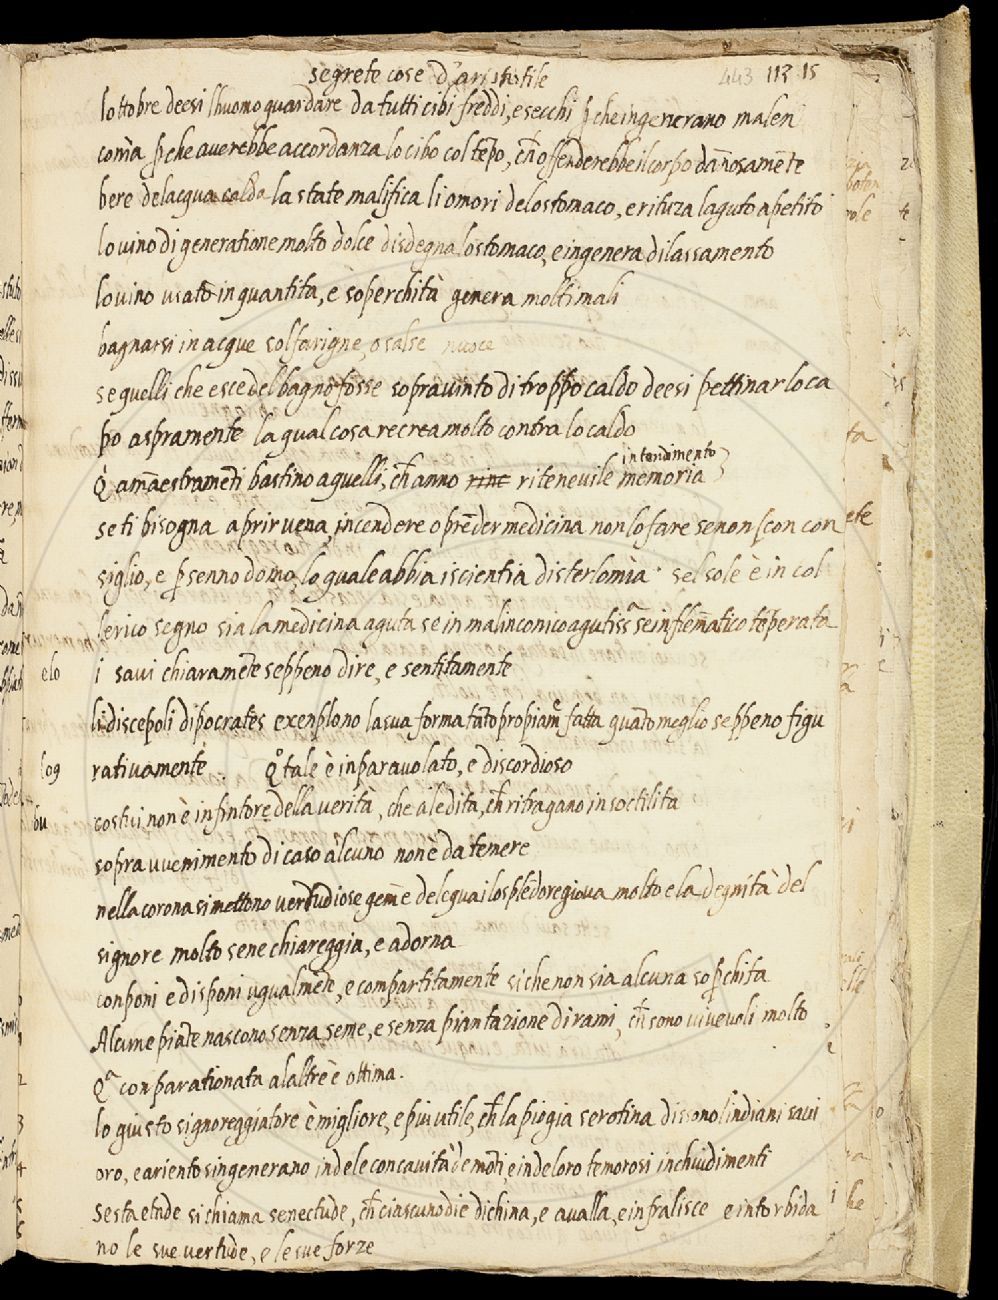 segrete cose d'aristotile 443 112 15
lottobre deesi lhuomo guardare da tutti cibi freddi, e secchi p̱che ingenerano malen
conia p̱che averebbe accordanza lo cibo col tẽpo, ch̃ offenderebbe il corpo dañosamẽte
bere delacqua calda la state malifica li omori delo stomaco, e rituza laguto apetito
lo vino di generatione molto dolce disdegna lo stomaco, e ingenera dilassamento
lo vino usato in quantita, e soperchità genera molti mali
bagnarsi in acque solfarigne, o salse nuoce
se quelli che esce del bagno fosse sopravinto di troppo caldo deesi pettinar lo ca
po aspramente la qual cosa recrea molto contra lo caldo
intendimento
Q̃ amaestrameti bastino a quelli, ch̃ anno rine ritenevile memoria
se ti bisogna aprir vena, incendere o prẽder medicina non lo fare se non con con
siglio, e p̱ senno domo, lo quale abbia iscientia disterlomia sel sole è in col
lerico segno sia la medicina aguta se in malinconico agutissa se in flem̃atico tẽperata
elo i savi chiaramẽte seppeno dire, e sentitamente
li discepoli dipocrates exenplono la sua forma tãto propiamẽ fatta quãto meglio seppeno figu
log rativamente Qo tale è inparavolato, e discordioso
bu costui non è infintore della verità, che a le dita, ch̃ ritragano in soctilita
sopra uvenimento di caso alcuno non è da tenere
nella corona si mettono vertudiose gem̃e dele quai lo splẽdore giova molto e la degnità del
signore molto sene chiareggia, e adorna
conponi e disponi ugualmẽte, e compartitamente si che non sia alcuna sop̱chita
Alcune piãte nascono senza seme, e senza piantazione di rami, ch̃ sono vivevoli molto
Qa conparationata alaltre è ottima.
lo giusto signoreggiatore è migliore, e piu utile, ch̃ la piogia serotina dissono lindiani savi
oro, e ariento singenerano indele concavità de mõti, e indeloro temorosi inchiudimenti
sesta etade si chiama senectude, ch̃ ciascuno die dichina, e avalla, e infralisce e intorbida
no le sue vertude, e le sue forze